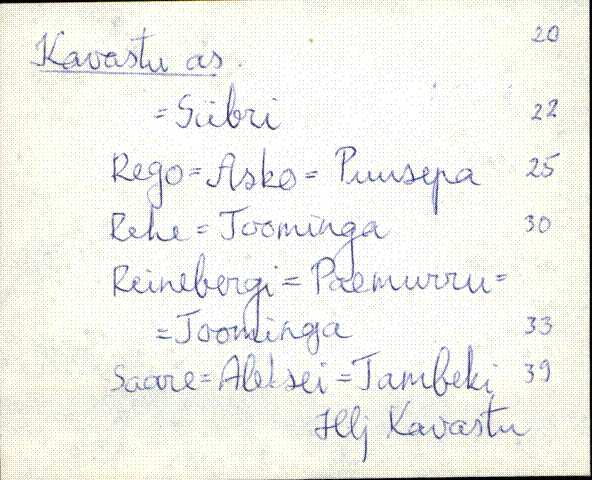 20
Kavastu as.
= Siibri 22
Rego = Asko = Puusepa 25
Rehe = Toominga 30
Reinebergi = Paemurru =
= Toominga 33
Saare = Aleksei = Tambeki 39
Hlj Kavastu